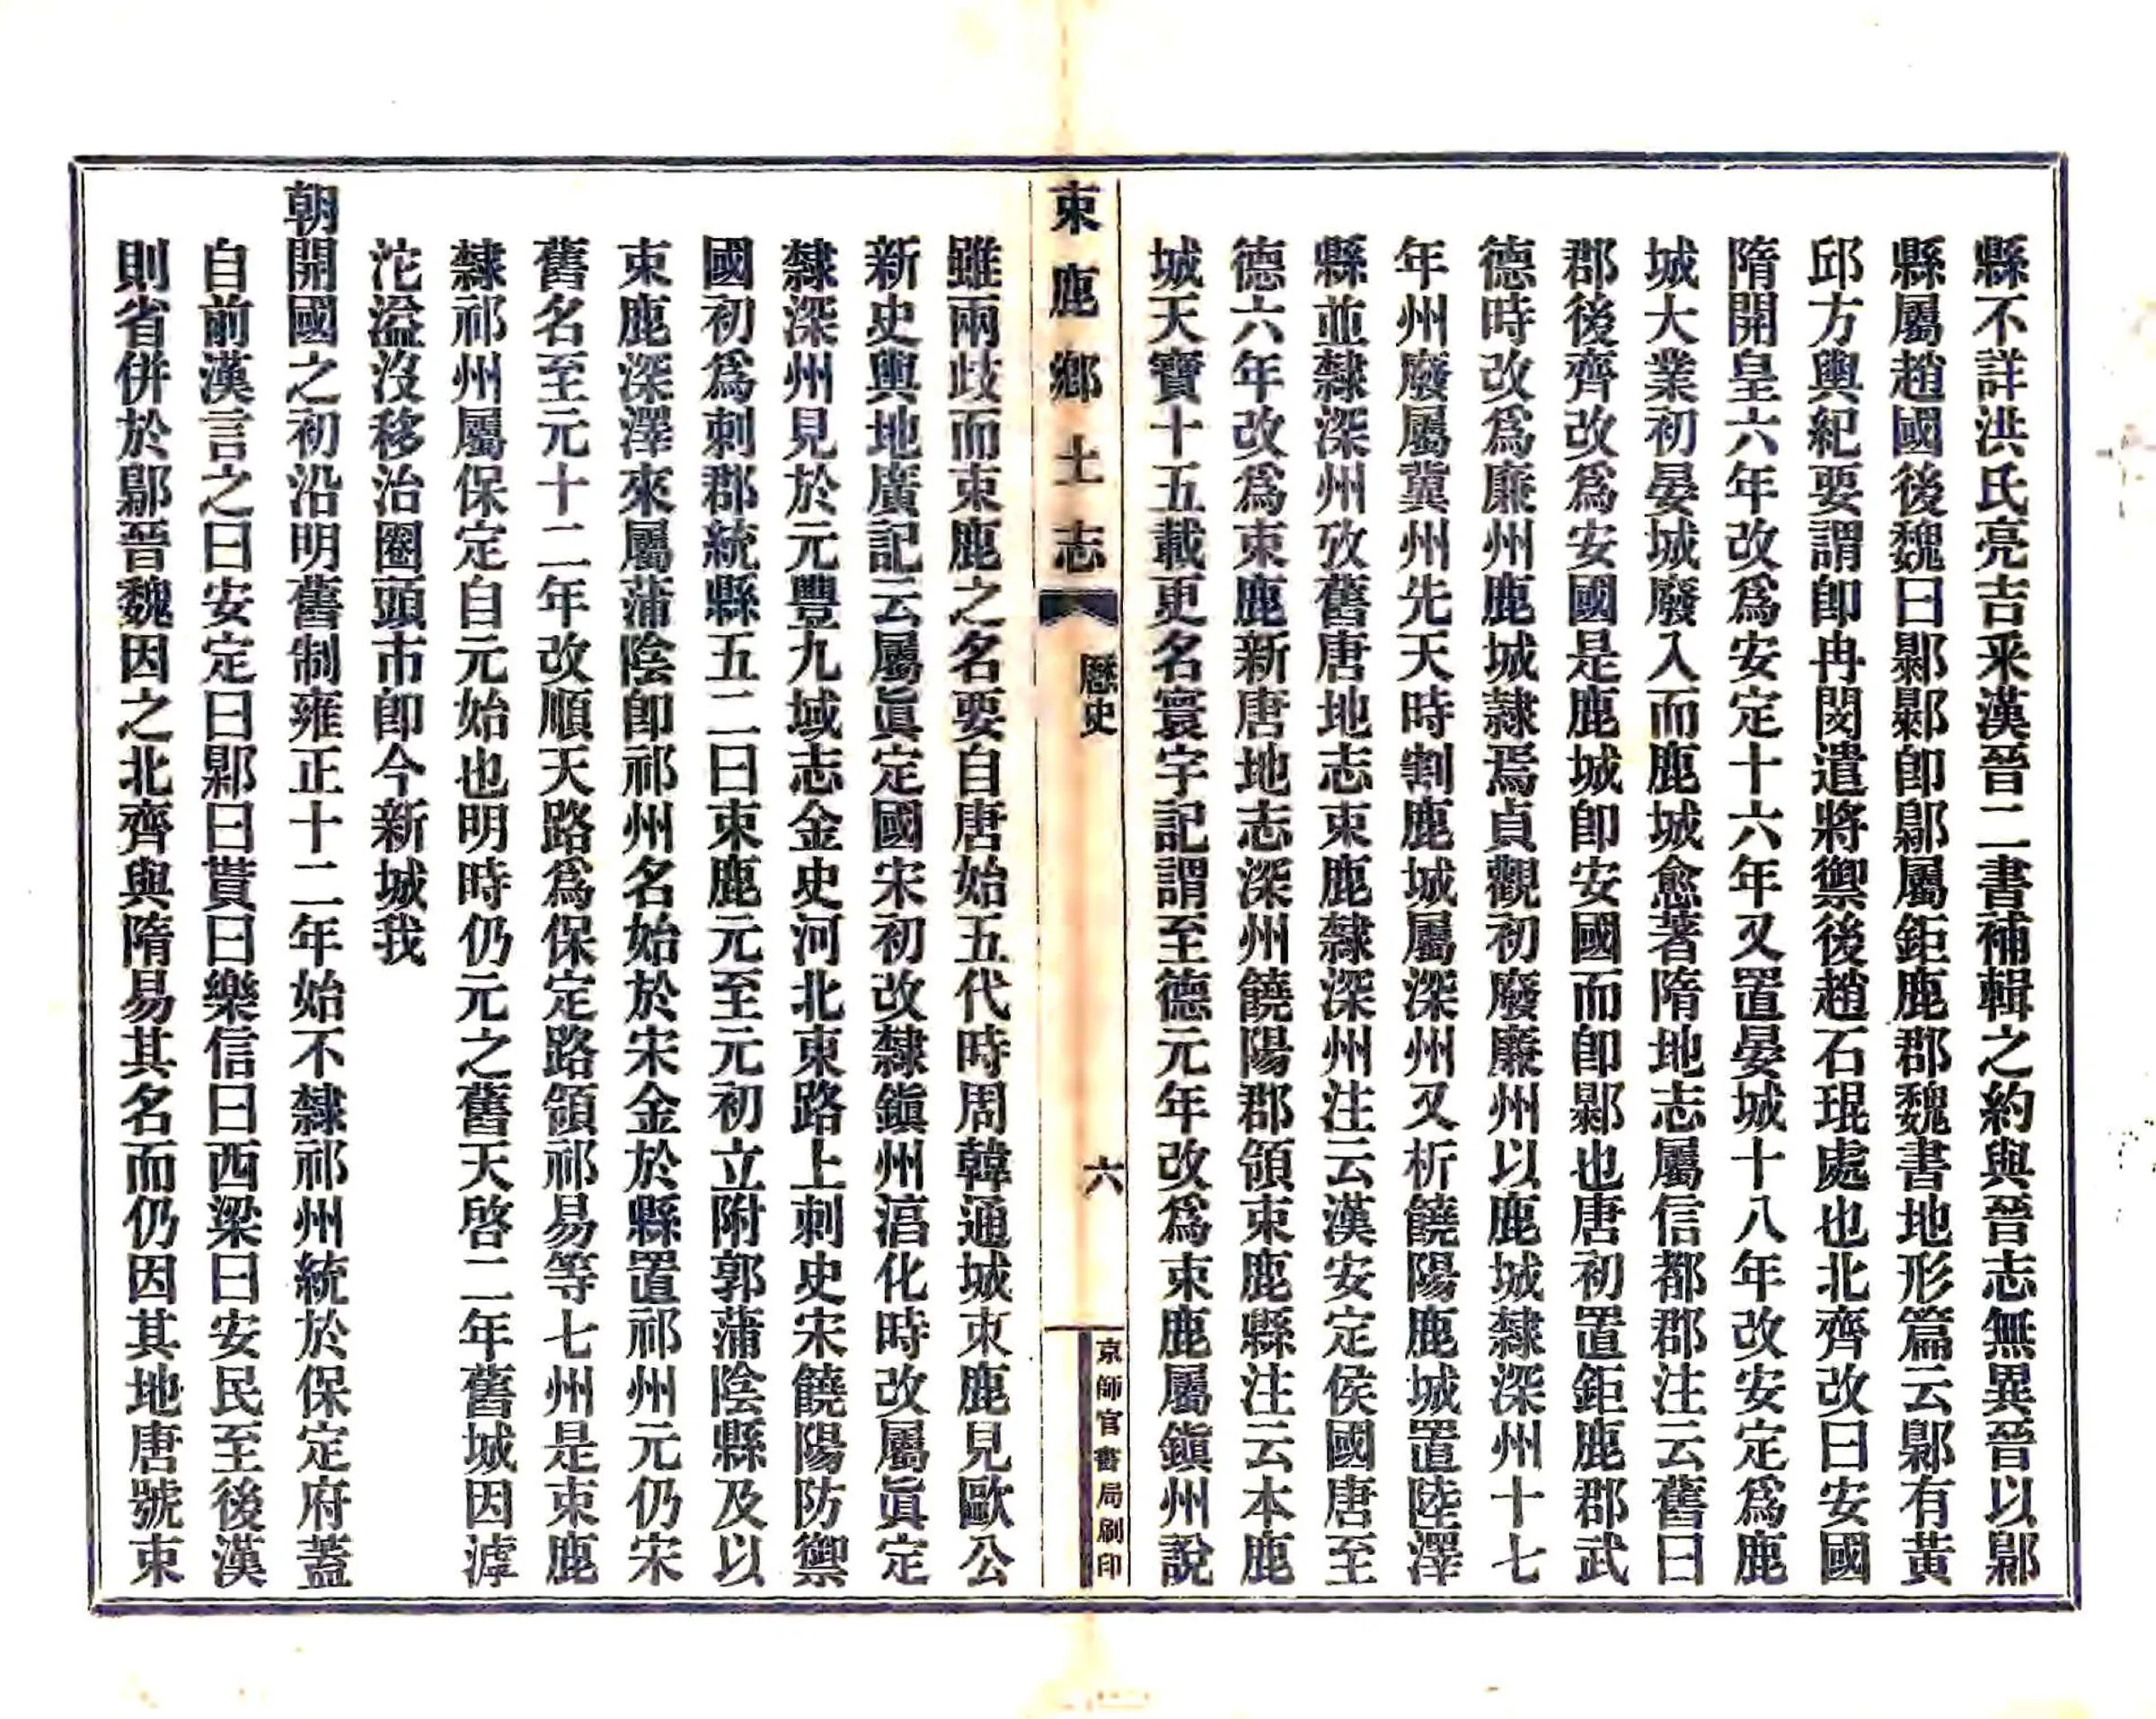 縣不詳洪氏亮吉釆漢晉二書補輯之約與晉志無異晉以鄡
縣屬趙國後魏曰鄡鄡卽鄡屬鉅鹿郡魏書地形篇云鄡有黃
邱方輿紀要謂卽冉閔遣將禦後趙石琨處也北齊改曰安國
隋開皇六年改爲安定十六年又置晏城十八年改安定爲鹿
城大業初晏城廢入而鹿城愈著隋地志屬信都郡注云舊曰
郡後齊改爲安國是鹿城卽安國而卽鄡也唐初置鉅鹿郡武
德時改爲廉州鹿城隷焉貞觀初廢廉州以鹿城隷深州十七
年州廢屬冀州先天時割鹿城屬深州又析饒陽鹿城置陸澤
縣並隷深州攷舊唐地志束鹿隷深州注云漢安定侯國唐至
德六年改爲束鹿新唐地志深州饒陽郡領束鹿縣注云本鹿
城天寶十五載更名寰宇記謂至德元年改爲束鹿屬鎭州說
束鹿鄉土志
歷史
六
京師官書局刷印
雖兩歧而束鹿之名要自唐始五代時周韓通城束鹿見歐公
新史輿地廣記云屬眞定國宋初改隷鎭州淯化時改屬眞定
隷深州見於元豐九域志金史河北東路上刺史宋饒陽防禦
國初爲刺郡統縣五二曰束鹿元至元初立附郭蒲陰縣及以
束鹿深澤來屬蒲陰卽祁州名始於宋金於縣置祁州元仍宋
舊名至元十二年改順天路爲保定路領祁易等七州是束鹿
隷祁州屬保定自元始也明時仍元之舊天啓二年舊城因滹
沱溢沒移治圈頭市卽今新城我
朝開國之初沿明舊制雍正十二年始不隷祁州統於保定府蓋
自前漢言之曰安定曰鄡曰貰曰樂信曰西梁曰安民至後漢
則省併於鄡晉魏因之北齊與隋易其名而仍因其地唐號束